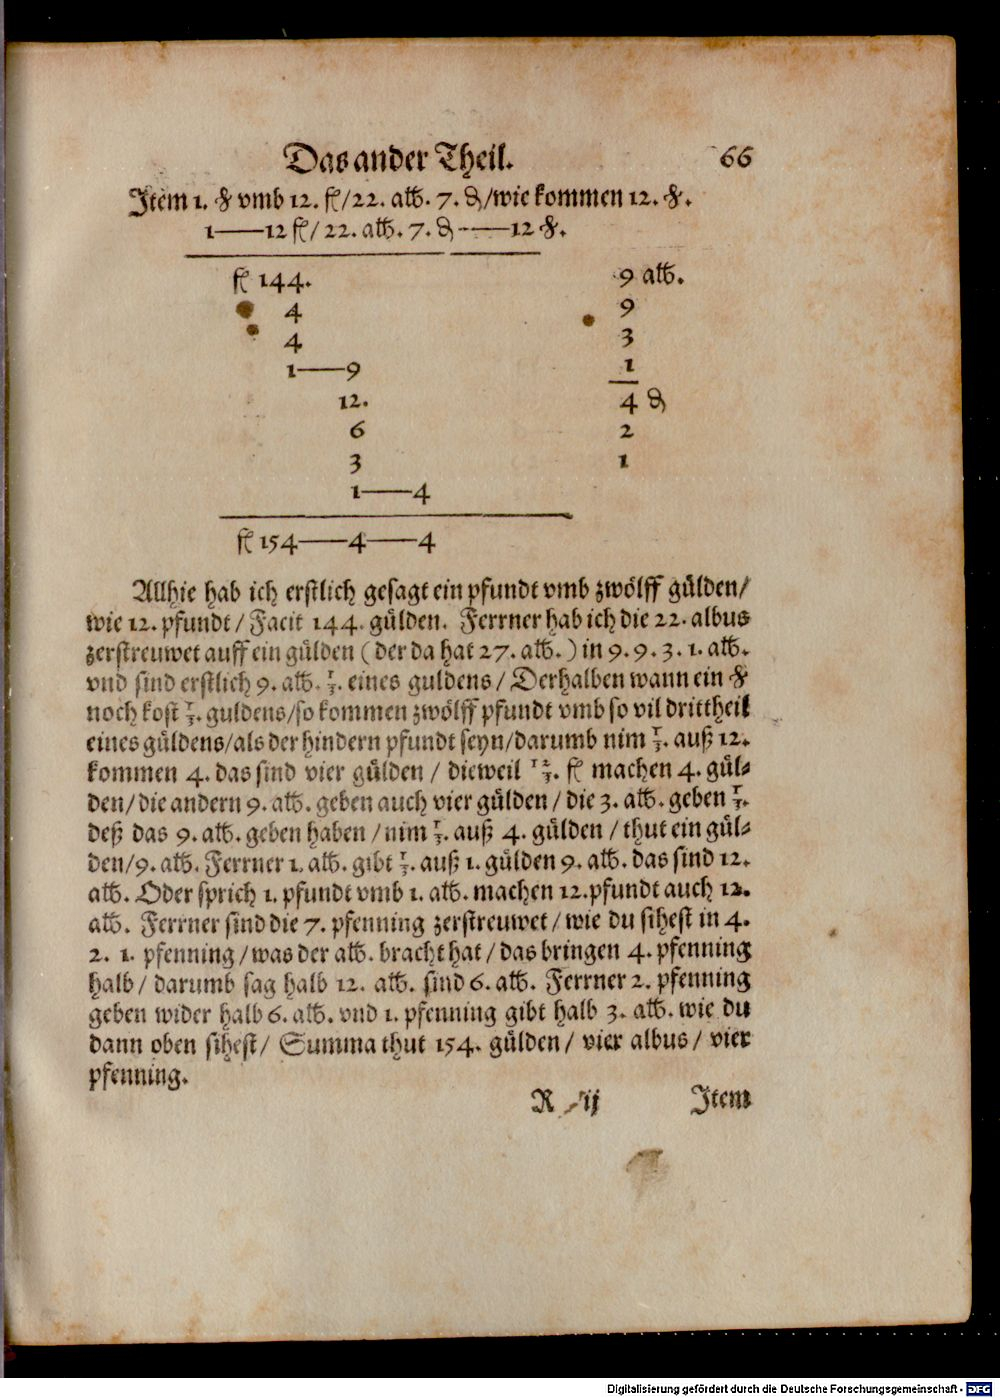 Das ander Theil. 66
Item 1. ℔ vmb 12. fl/22. alb. 7. ₰/wie kommen 12. ℔.
1——12 fl/ 22. alb. 7. ₰ ——12 ℔.
fl 144. 9 alb.
4 9
4 3
1——9 1
12. 4 ₰
6 2
3 1
1——4
fl 154——4——4
Allhie hab ich erstlich gesagt ein pfundt vmb zwölff gülden/
wie 12. pfundt/ Facit 144. gülden. Ferrner hab ich die 22. albus
zerstreuwet auff ein gülden (der da hat 27. alb.) in 9. 9. 3. 1. alb.
vnd sind erstlich 9. alb. ⅓. eines guldens/ Derhalben wann ein ℔
noch kost ⅓. guldens/so kommen zwölff pfundt vmb so vil drittheil
eines güldens/als der hindern pfundt seyn/darumb nim ⅓. auß 12.
kommen 4. das sind vier gülden / dieweil 12/3. fl machen 4. gül⸗
den/die andern 9. alb. geben auch vier gülden / die 3. alb. geben ⅓.
deß das 9. alb. geben haben / nim ⅓. auß 4. gülden / thut ein gül⸗
den/9. alb. Ferrner 1. alb. gibt ⅓. auß 1. gülden 9. alb. das sind 12.
alb. Oder sprich 1. pfundt vmb 1. alb. machen 12. pfundt auch 12.
alb. Ferrner sind die 7. pfenning zerstreuwet / wie du sihest in 4.
2. 1. pfenning / was der alb. bracht hat / das bringen 4. pfenning
halb / darumb sag halb 12. alb. sind 6. alb. Ferrner 2. pfenning
geben wider halb 6. alb. vnd 1. pfenning gibt halb 3. alb. wie du
dann oben sihest/ Summa thut 154. gülden / vier albus / vier
pfenning.
R ij Item
Digitalisierung gefördert durch die Deutsche Forschungsgemeinschaft - DFG